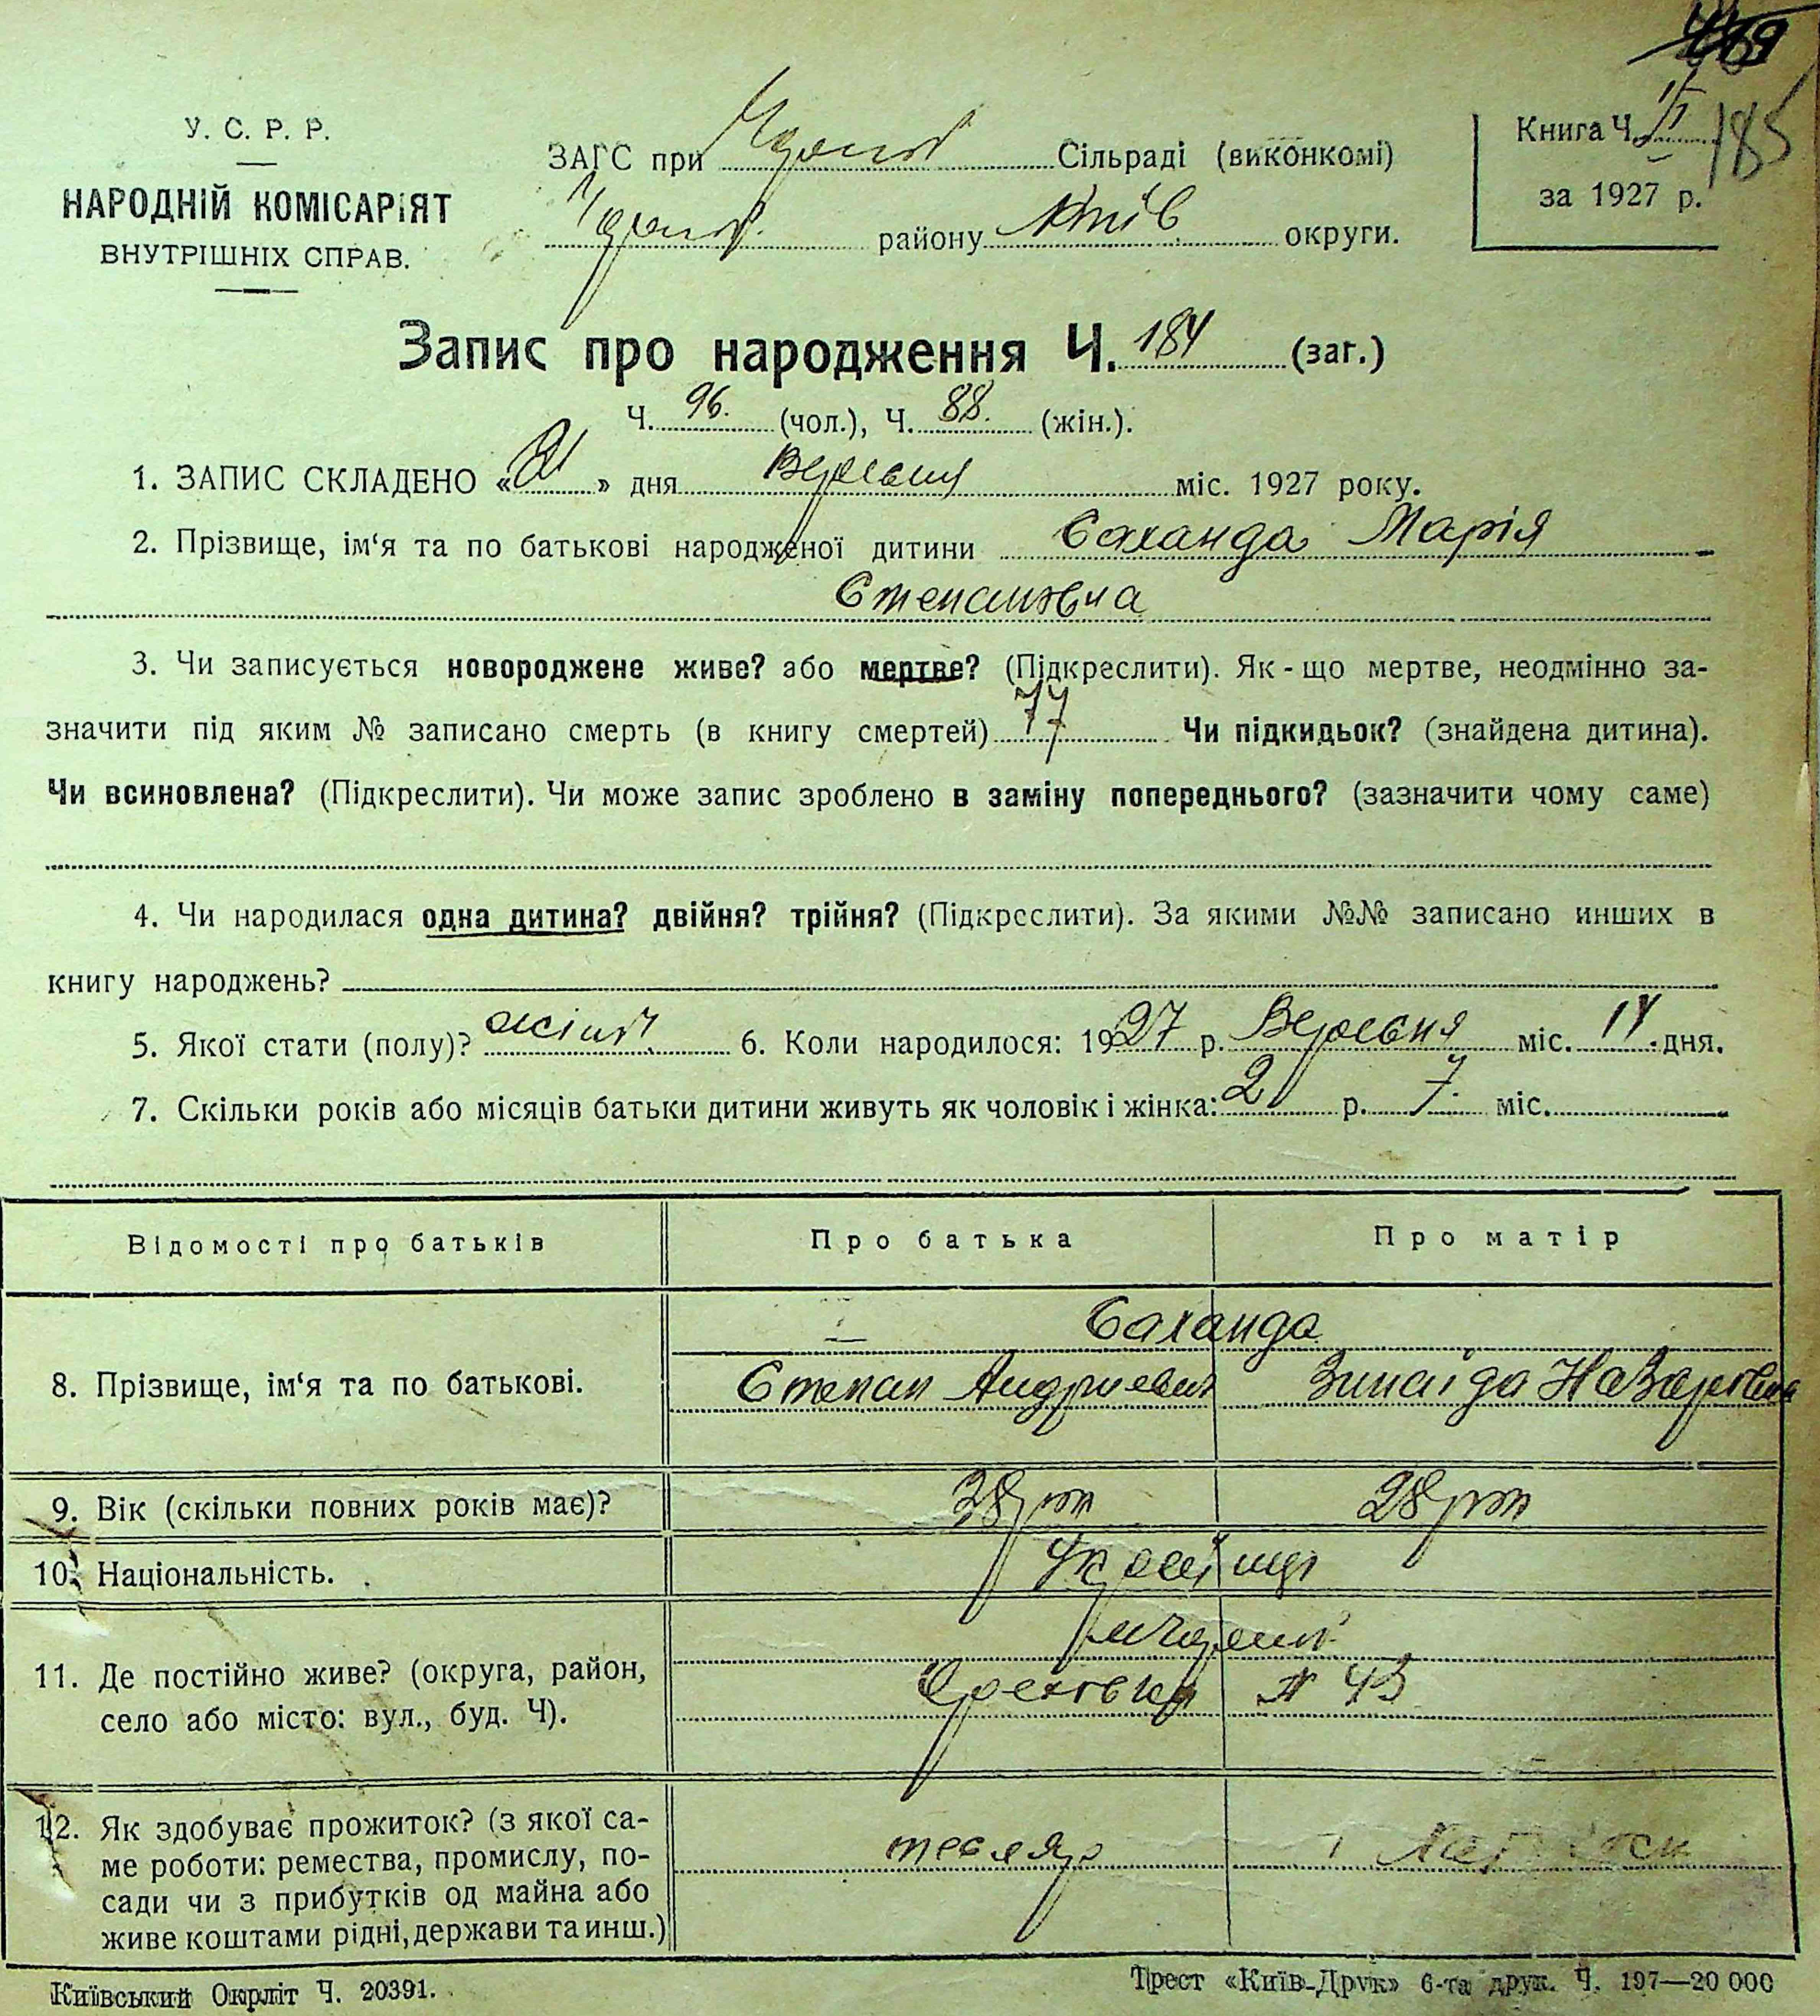 У. С. Р. Р.
НАРОДНІЙ КОМІСАРІЯТ
ВНУТРІШНІХ СПРАВ.
ЗАГС при Сільраді (виконкомі)
району Київ округи.
Книга Ч.
185
за 1927 р.
Запис про народження Ч. 184 (заг.)
Ч. 96. (чол.), Ч. 88. (жін.).
1. ЗАПИС СКЛАДЕНО « » дня Вересня міс. 1927 року.
2. Прізвище, ім‘я та по батькові народженої дитини Саханда Марія
Степановна
3. Чи записується новороджене живе? або мертве? (Підкреслити). Як-що мертве, неодмінно за-
значити під яким № записано смерть (в книгу смертей) 77 Чи підкидьок? (знайдена дитина).
Чи всиновлена? (Підкреслити). Чи може запис зроблено в заміну попереднього? (зазначити чому саме)
4. Чи народилася одна дитина? двійня? трійня? (Підкреслити). За якими №№ записано инших в
книгу народжень?
5. Якої стати (полу)? жіноч. 6. Коли народилося: 1927 р. Вересня міс. 14 дня.
7. Скільки років або місяців батьки дитини живуть як чоловік і жінка: 2 р. 7 міс.
Відомості про батьків Про батька Про матір
8. Прізвище, ім‘я та по батькові. Саханда
Степан Андриевич Зинаіда Назаровна
9. Вік (скільки повних років має)? 38 рок 28 рок
10. Національність. Українці
11. Де постійно живе? (округа, район,
село або місто: вул., буд. Ч).
№ 43
12. Як здобуває прожиток? (з якої са-
ме роботи: ремества, промислу, по-
сади чи з прибутків од майна або
живе коштами рідні, держави та инш.)
тесляр
Київський Окрліт Ч. 20391.
Трест «Київ-Друк» 6-та друк. Ч. 197—20 000